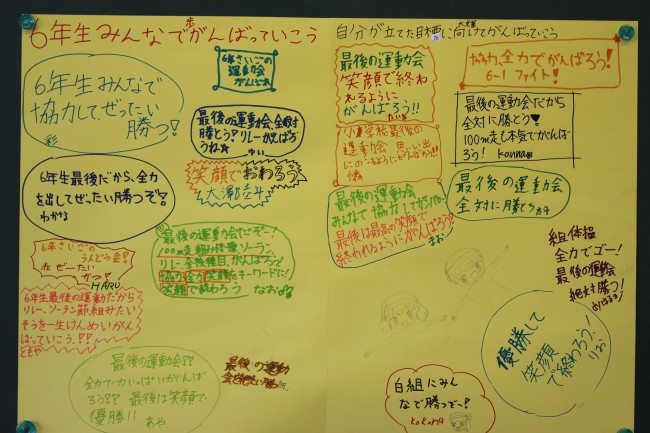 6年生みんなでがんばっていこう
自分が立てた目標に向けてがんばっていこう
6年生みんなで
協力して、ぜったい
勝つ!
彩
6年生さいごの
運動会
がんばるぞ
最後の運動会、全力で
勝とう!リレーがんばろ
うね☆
ゆい
6年生最後だから、全力
を出してぜったい勝つぞ。
わかな
笑顔でおわろう
6年さいごの
うんどう会!
ぜーたい
かつ!
HARU
最後の運動会だぞー!
100m走、組み体操、ソーラン、
リレー、全校種目、がんばろう!
協力、全力、笑顔をキーワードに!
笑顔で終わろう
なお
6年生最後の運動だから
リレー、ソーラン節、組みたい
そうを一生けんめいがん
ばっていこう。!?
ともや
最後の運動会!?
全力で、力いっぱいがんば
ろう!? 最後は笑顔で
優勝!!
あや
最後の運動
最後の運動会
笑顔で終わ
れるように
がんばろう!!
小学校最後の
運動会 思い出
にのこるようにがんばろう!!
最後の運動会
みんなで協力してがんばろう
最後は最高の笑顔で
終われるようにがんばろう?
きお
協力、全力でがんばろう!
6-1 ファイト!
最後の運動会だから
全対に勝とう
100m走し本気でがんば
ろう! kanna
最後の運動会
全対に勝とう
組体操
全力でゴー!
最後の運動会
絶対勝つ!
優勝して
笑顔
で終わろう!
りお
白組にみん
なで勝つぞ~!
kokona